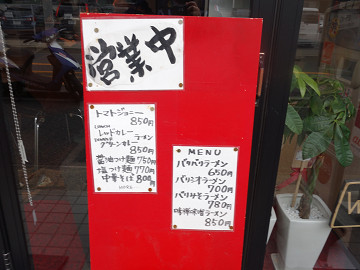 営業中
トマトジョニー
850円
LUNCH
レッドカレー
DINNER ラーメン
グリーンカレー
850円
醤油つけ麺 750円
塩つけ麺 770円
中華そば 800円
MENU
パクパクラーメン
650円
パリシオラーメン
700円
パリみそラーメン
780円
味噌ラーメン
850円